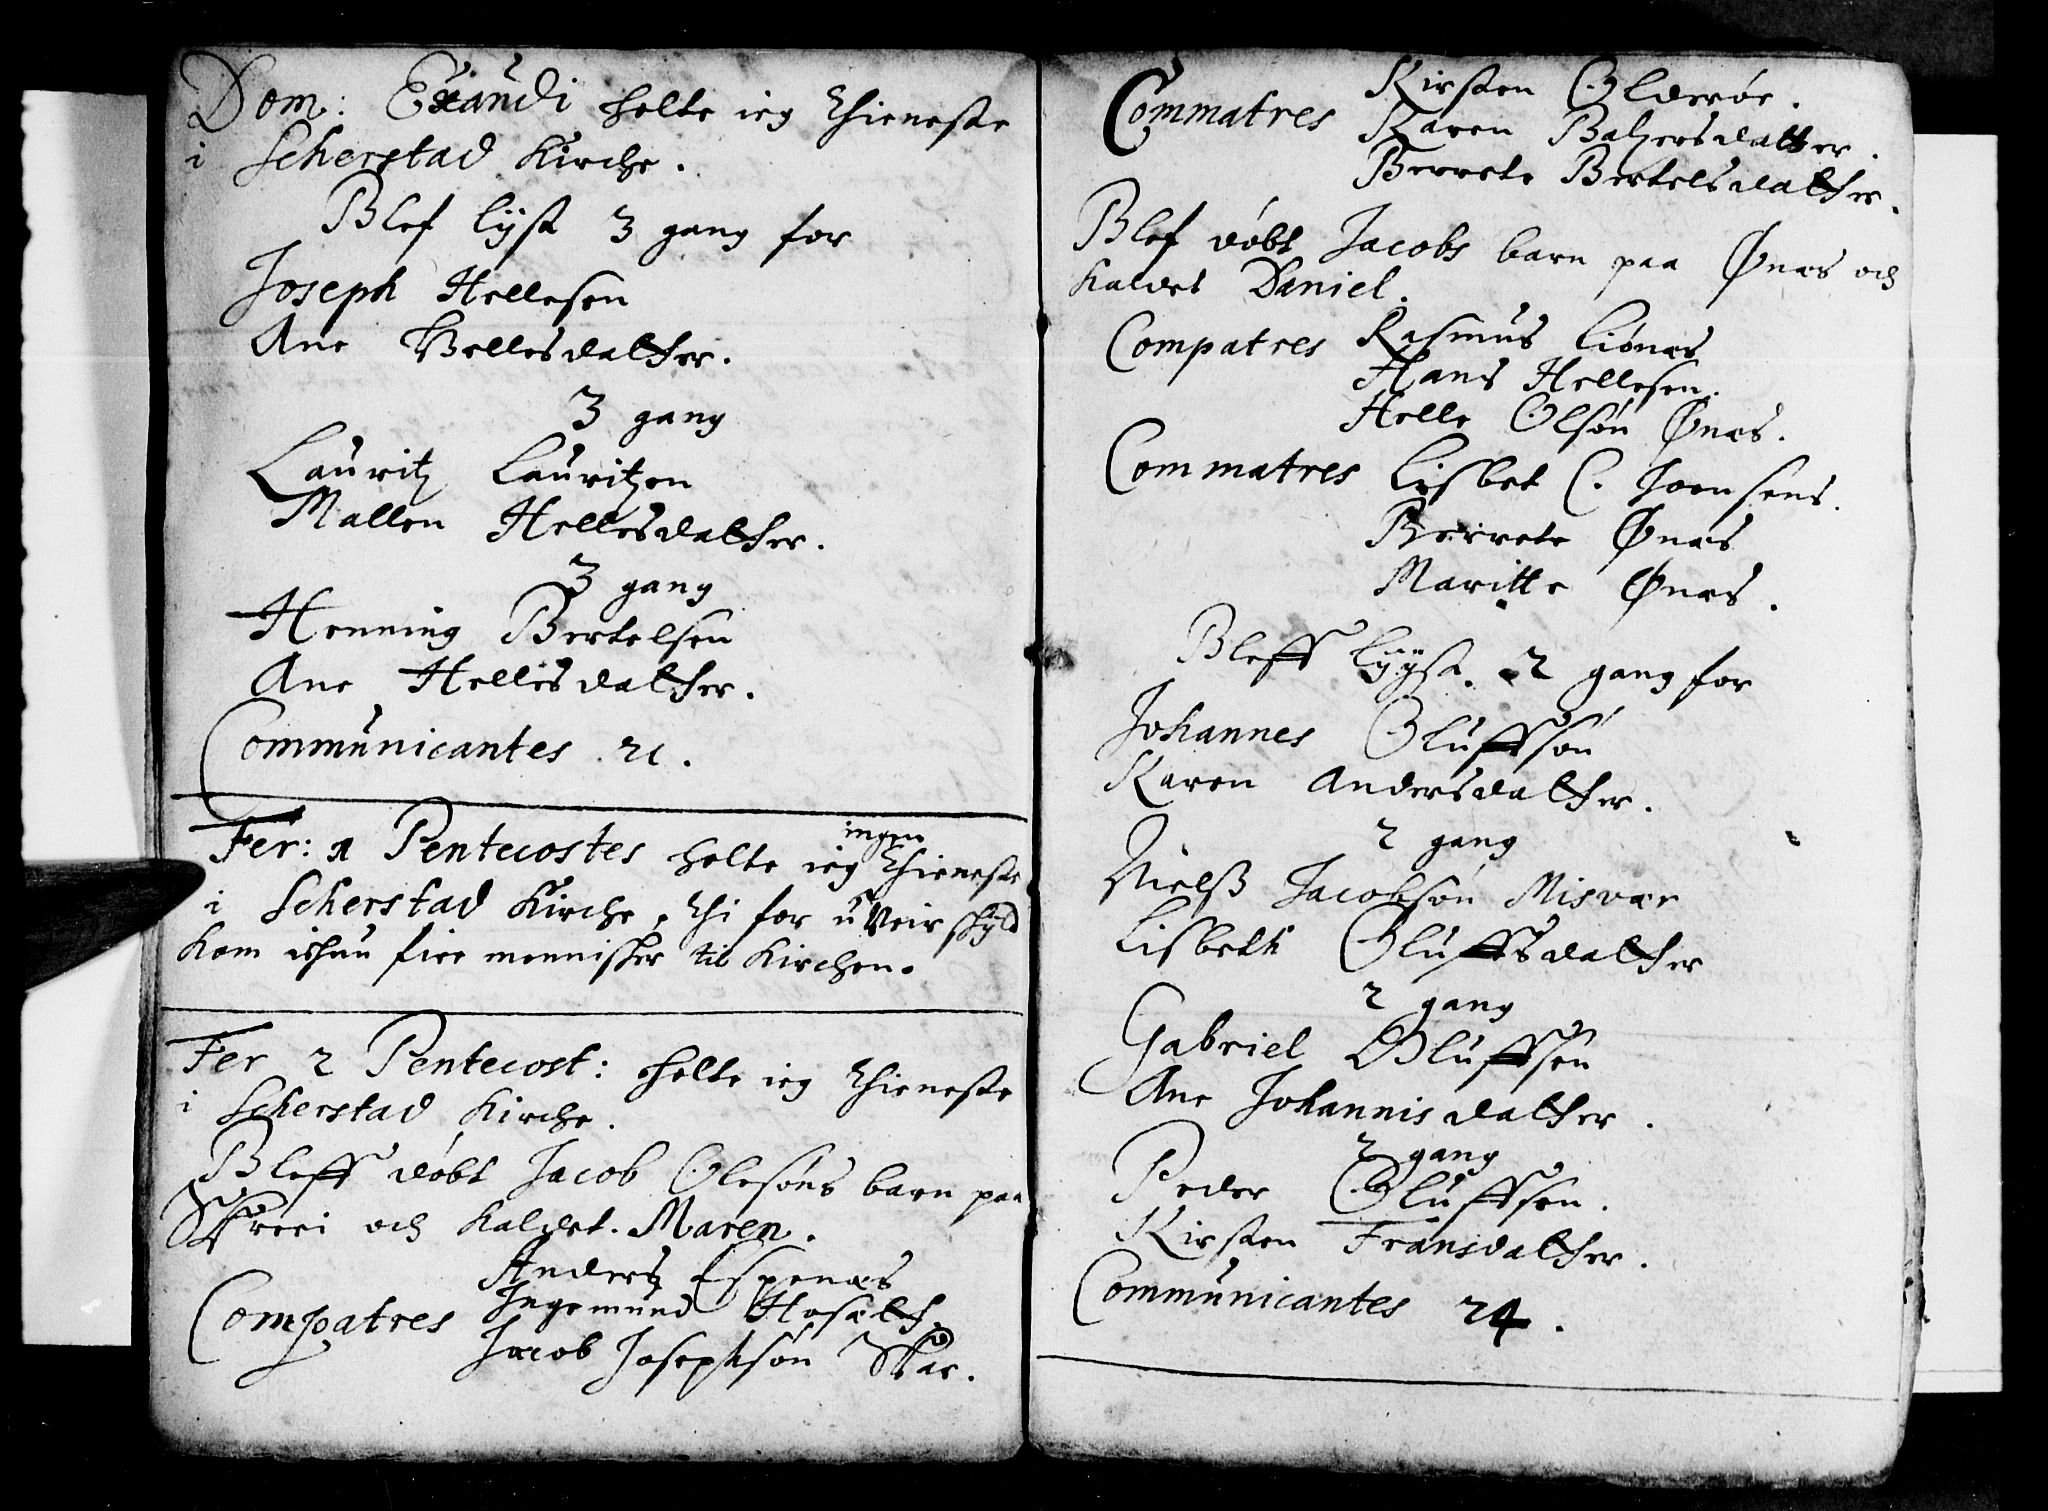 Dom: Exaudi holte ieg thieneste
i Scherstad Kirche.
Blef lyst 3 gang for
Joseph Hellesen
Ane Pellesdatter.
3 gang
Lauritz Lauritzen
Mallen Hellesdatter.
3 gang
Henning Bertelsen
Ane Hellesdatter.
Communicantes 21.
Fer: 1 Pentecostes holte ieg ingen thieneste
i Scherstad Kirche, thi for uveir skyld
kom ichun fire mennisker til Kirchen.
Fer 2 Pentecost: holte ieg thieneste
i Scherstad Kirche.
Bleff døbt Jacob Olesøns barn paa
och kaldet Maren.
Anders Espenæs
Compatres Ingemund
Jacob Josephsøn Skar.
Commatres Kirsten Olderøe.
Karen Baltzersdatter.
Berrete Bertelsdatter.
Blef døbt Jacobs barn paa Ønæs och
kaldet Daniel.
Compatres Rasmus Liønæs
Hans Hellesen.
Helle Olsøn Ønæs.
Commatres Lisbet C. Joensens.
Berrete Ønæs
Maritte Ønæs.
Bleff lyyst 2 gang for
Johannes Oluffsøn
Karen Andersdatter.
2 gang
Nielß Jacobsøn Misvær
Lisbeth Oluffsdatter
2 gang
Gabriel Oluffsøn
Ane Johannisdatter.
2 gang
Peder Oluffsen.
Kirsten Fransdatter.
Communicantes 24.